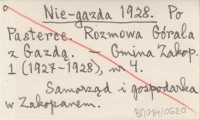 Nie-gazda 1928. Po
Pasterce. Rozmowa Górala
z Gazdą. — Gmina Zakop.
1 (1927-1928), nr 4.
Samorząd i gospodarka
w Zakopanem.